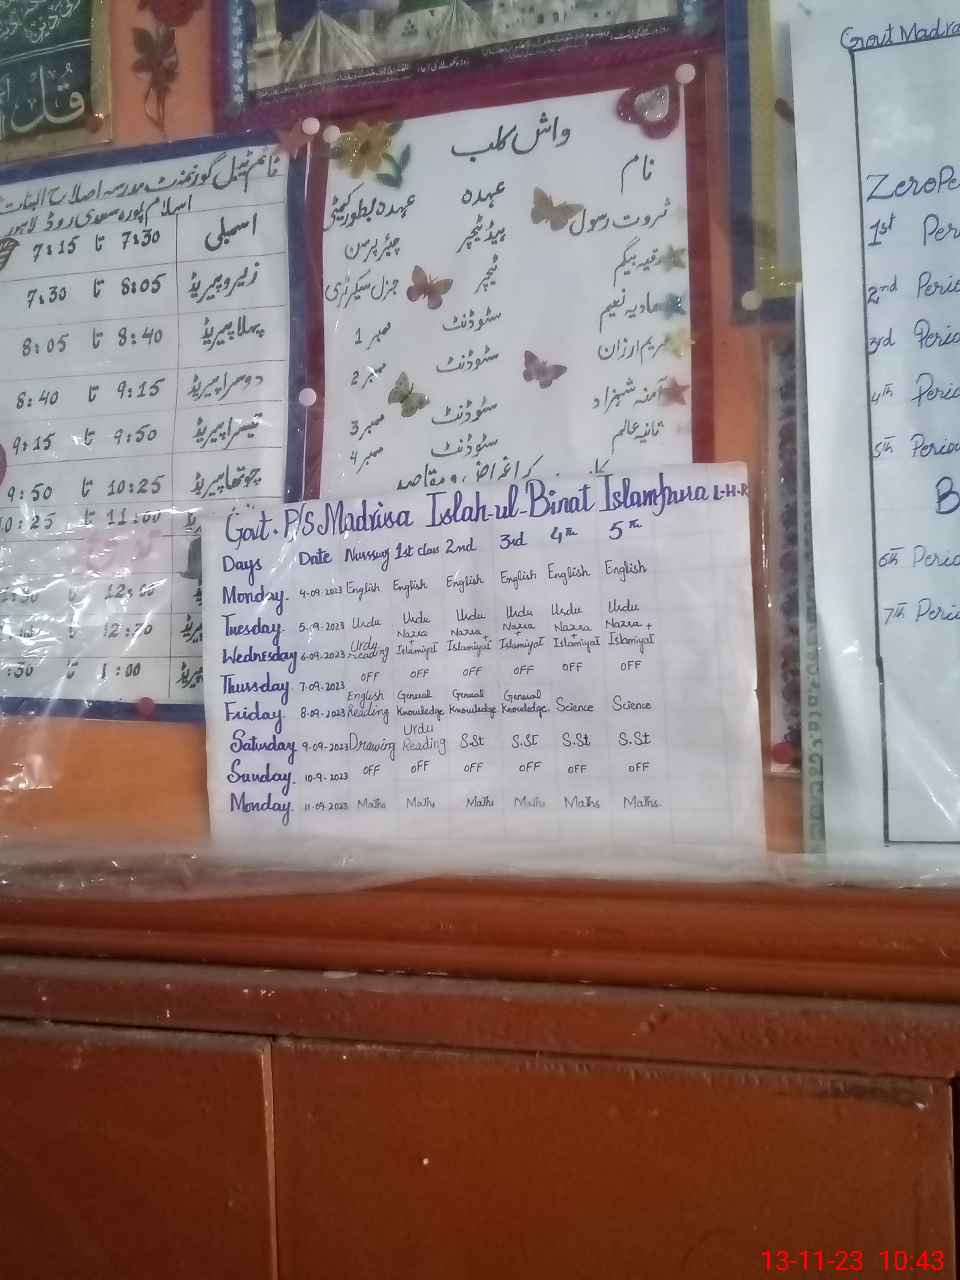 قل
ٹائم ٹیبل گورنمنٹ مدرسہ اصلاح البنات
اسلام پورہ سعدی روڈ لاہور
اسمبلی 7:15 تا 7:30
زیرو پیریڈ 7:30 تا 8:05
پہلا پیریڈ 8:05 تا 8:40
دوسرا پیریڈ 8:40 تا 9:15
تیسرا پیریڈ 9:15 تا 9:50
چوتھا پیریڈ 9:50 تا 10:25
10:25 تا 11:00
تا 12:00
تا 12:30
:30 تا 1:00
واش کلب
نام عہدہ عہدہ بطور کمیٹی
ثروت رسول ہیڈ ٹیچر چیئر پرسن
رقیہ بیگم ٹیچر جنرل سیکرٹری
سعادیہ نعیم سٹوڈنٹ ممبر 1
مریم ارزان سٹوڈنٹ ممبر 2
آمنہ شہزاد سٹوڈنٹ ممبر 3
ثانیہ عالم سٹوڈنٹ ممبر 4
کے اغراض و مقاصد
Govt. P/S Madrisa Islah-ul-Binat Islampura L-H-R
Days Date Nurssury 1st class 2nd 3rd 4th 5th
Monday. 4-09-2023 English English English English English English
Tuesday. 5-09-2023 Urdu Urdu Urdu Urdu Urdu Urdu
Wednesday 6-09-2023 Urdu Reading Nazra + Islamiyat Nazra + Islamiyat Nazra + Islamiyat Nazra + Islamiyat Nazra + Islamiyat
Thursday. 7-09-2023 OFF OFF OFF OFF OFF OFF
Friday. 8-09-2023 English Reading General Knowledge General Knowledge. General Knowledge. Science Science
Saturday 9-09-2023 Drawing Urdu Reading S.St S.St S.St S.St
Sunday. 10-9-2023 OFF OFF OFF OFF OFF OFF
Monday. 11-09-2023 Maths Maths Maths Maths Maths Maths.
Govt Madra
Zero Pe
1st Per
2nd Perio
3rd Perio
4th Perio
5th Period
B
6th Perio
7th Perio
13-11-23 10:43